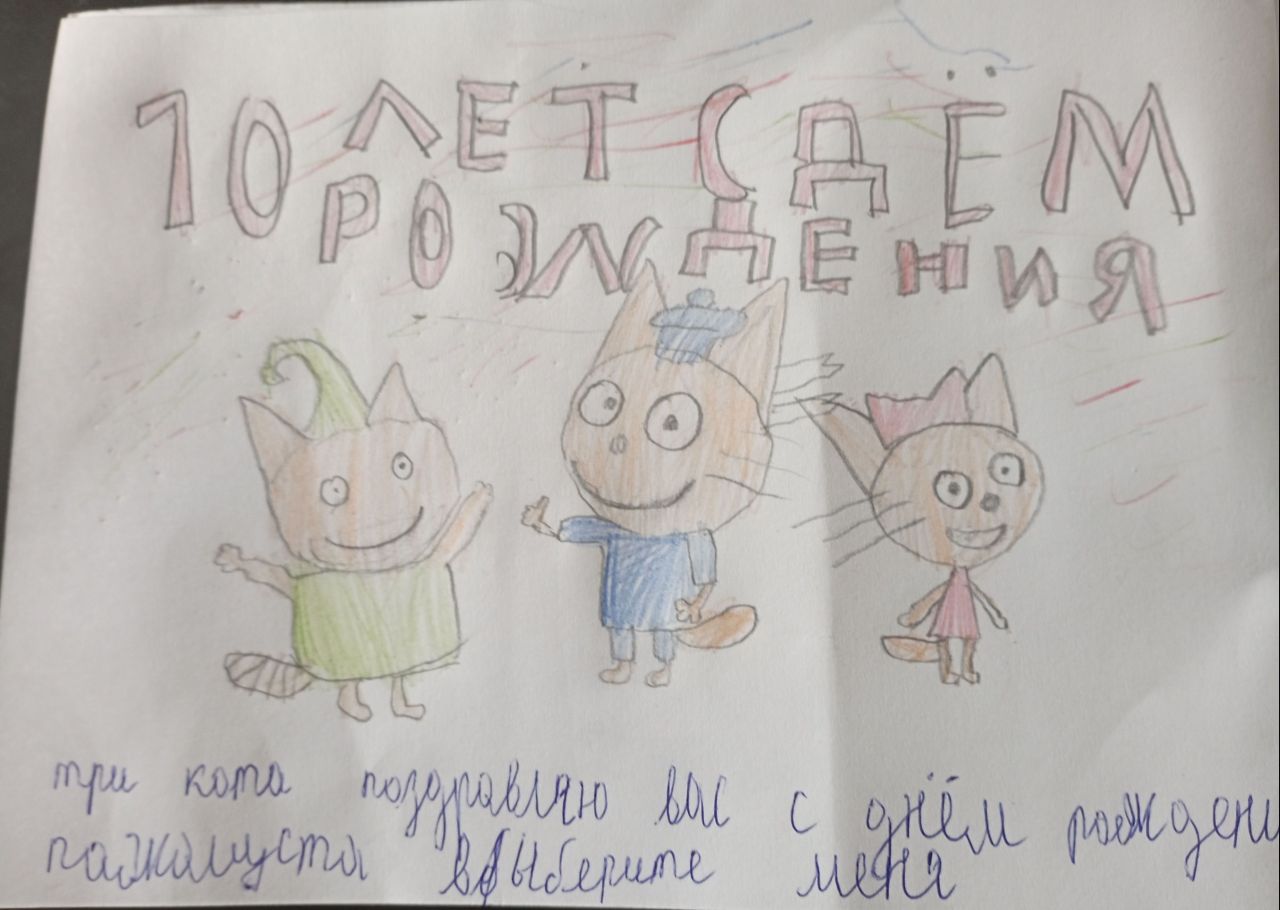 10 ЛЕТ С ДЁМ
РОЖДЕНИЯ
три кота поздравляю вас с днём рождени
пажалуста выберите меня